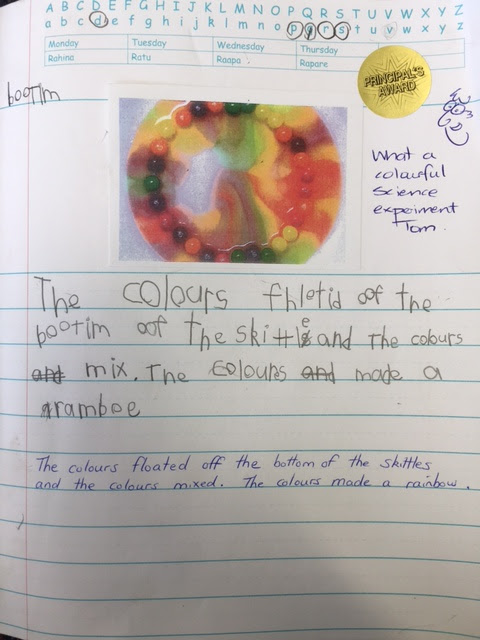 A B C D E F G H I J K L M N O P Q R S T U V W X Y Z
a b c d e f g h i j k l m n o p q r s t u v w x y z
Monday Tuesday Wednesday Thursday
Rahina Ratu Raapa Rapare
PRINCIPAL'S
AWARD
bootim
What a
colourful
science
expeiment
Tom.
The colours fhletid oof the
bootim oof the skittle and the colours
and mix. The colours and made a
ramboe
The colours floated off the bottom of the skittles
and the colours mixed. The colours made a rainbow.